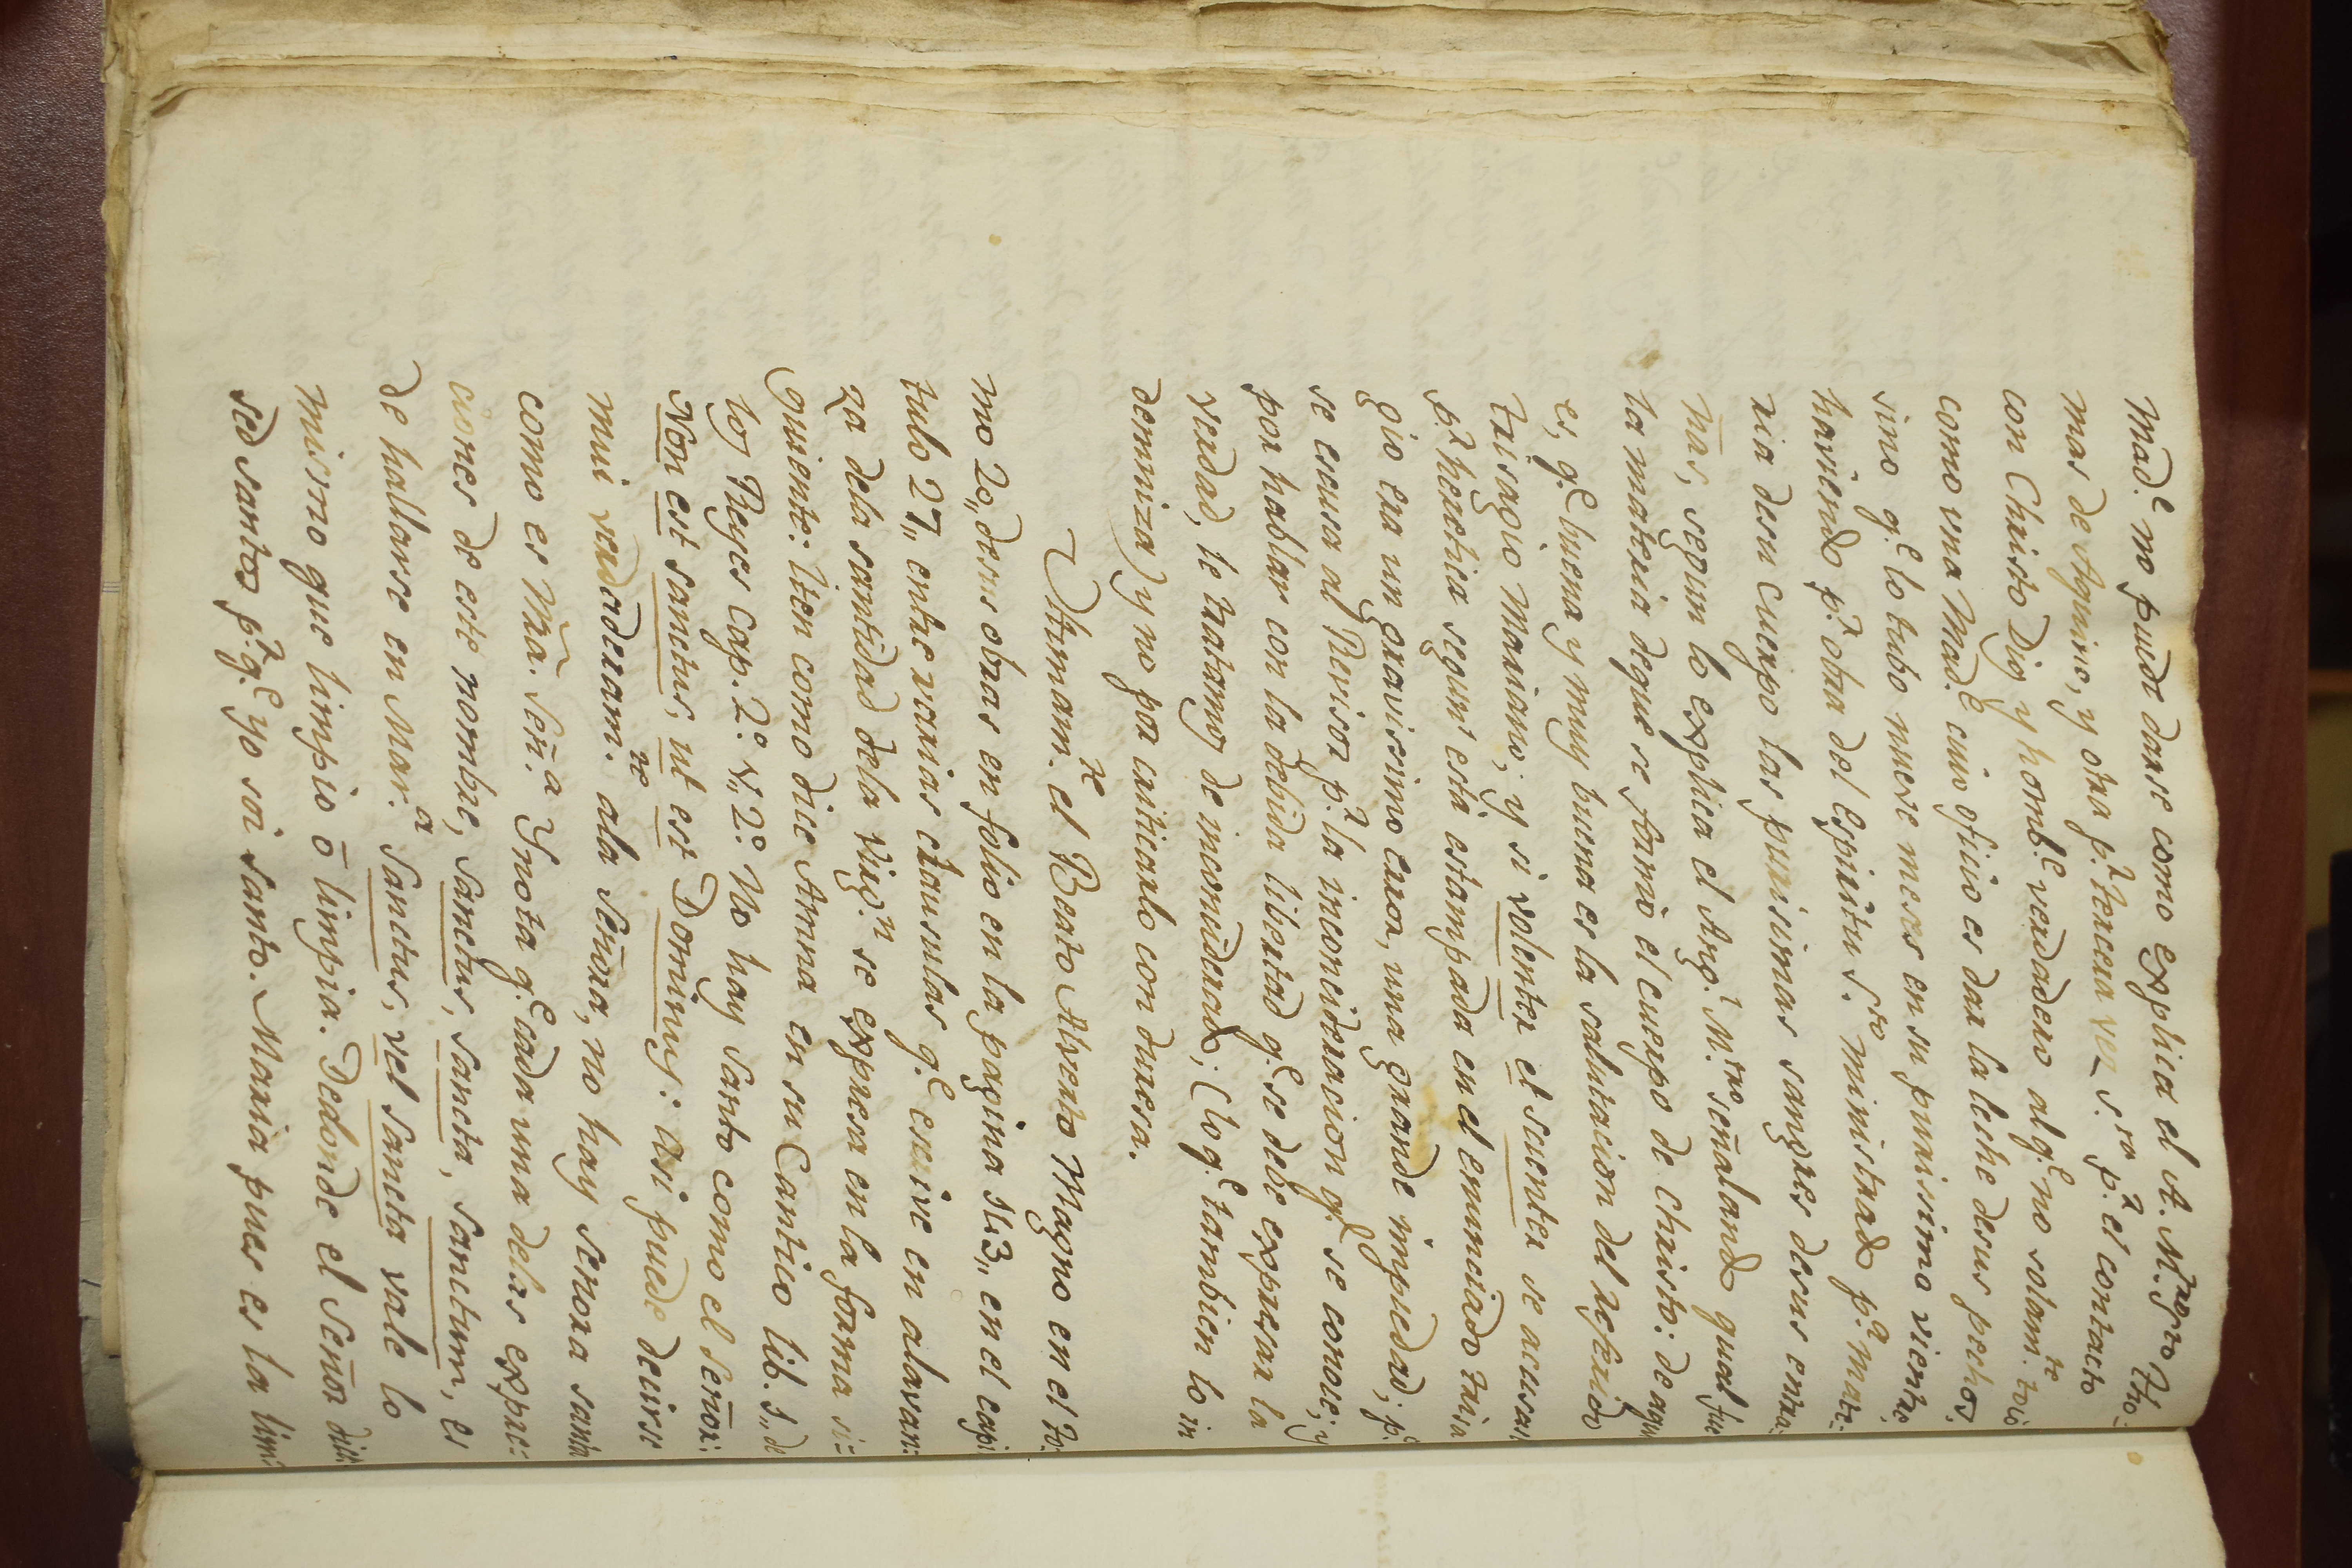 Mad.e no puede darse como explica el A. M.tro Tho-
mas de Aquino, y otra p.r tercera ves s.ra p.r el contacto
con Christo Dios y homb.e verdadero al q.e no solam.te trio
como una Mad.e cuio oficio es dar la leche desus pechos,
sino q.e lo tubo nueve meses en su purissimo vientre,
haviendo p.r obra del Espiritu S.to ministrado p.a mate-
ria desu cuerpo las purisimas sangres desus entra-
ñas, segun lo explica el Ang.l M.tro señalando qual fue
la materia deque se formò el cuerpo de Christo: de aqui
es, q.e buena y muy buena es la salutacion del referido
trisagio Mariano; y si volenter et scienter se acusa
p.r heretica segun està estampada en el enunciado trisa
gio era un gravissimo error, una grande impiedad; p.o
se escusa al Revisor p.r la inconcideracion q.e se conoce; y
por hablar con la debida libertad q.e se debe expresar la
verdad, le tratamos de inconciderado; (lo q.e tambien lo in
demniza) y no pa criticarlo con duresa.
Ultimam.te el Beato Alverto Magno en el to-
mo 20,, desus obras en folio en la pagina 113,, en el capi
tulo 27,, entre varias clausulas q.e escrive en alavan-
za dela santidad dela Virg.n se expresa en la forma si=
guiente: Iten como dice Anna en su Cantico lib. 1,, de
los Reyes Cap. 2.o v,, 2.o No hay santo como el señor:
Non est sanctus, ut est Dominus: asi puede decirse
mui verdaderam.te ala Señora, no hay senora santa
como es Mrã. Señ.a Y nota q.e cada una delas expre-
ciones de este nombre, sanctus, sancta, sanctum, es
de hallarse en Mar.a Sanctus, vel Sancta vale lo
mismo que limpio ò limpia. Dedonde el Señor dice
sed santos p.r q.e yo soi santo. Maria pues es la lim-